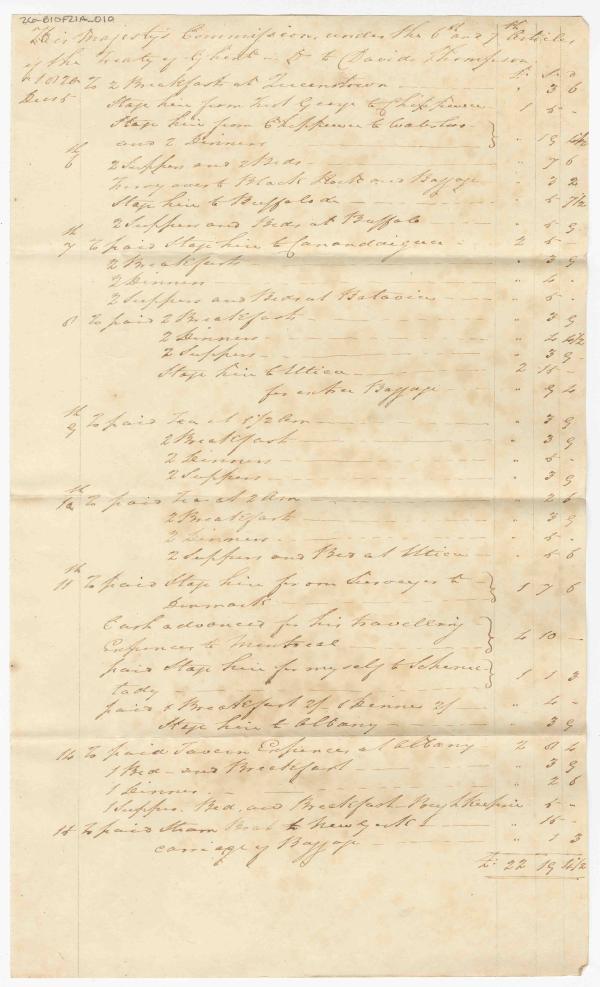 26-B10F21A_010
His Majesty's Commission, under the 6th and 7th Articles
of the Treaty of Ghent Dr to David Thompson
£ s d
To 2 Breakfasts at Queenstown " 3 6
Decr 5 Stage hire from Fort George to Chippewa 1 5 -
Stage hire from Chippewa to Waterloo
and 2 Dinners } " 19 4½
6th 2 Suppers and 2 Beds " 7 6
Ferry over to Black Rock and Baggage " 3 2
Stage hire to Buffalo do " 5 7½
2 Suppers and Beds at Buffalo " 5 9
7th To paid Stage hire to Canandaigua 2 5 -
2 Breakfasts " 3 9
2 Dinners " 4 -
2 Suppers and Beds at Batavia " 5 -
8 To paid 2 Breakfasts " 3 9
2 Dinners " 4 4½
2 Suppers " 3 9
Stage hire to Utica 2 15 -
for extra Baggage " 9 4
9th To paid Tea at 1½ Am " 3 9
2 Breakfasts " 3 9
2 Dinners " 5 -
2 Suppers " 3 9
10th To paid Tea at 2 Am " 2 6
2 Breakfasts " 3 9
2 Dinners " 5 -
2 Suppers and Bed at Utica " 5 6
11th To paid Stage hire for one Surveyor to
Denmark } 1 7 6
Cash advanced for his travelling
Expences to Montreal } 4 10 -
paid Stage hire for myself to Schenec-
tady } 1 1 3
paid 1 Breakfast 2/- 1 Dinner 2/- " 4 -
Stage hire to Albany " 3 9
14 To paid Tavern Expences at Albany 2 8 4
1 Bed and Breakfast " 3 9
1 Dinner " 2 6
1 Supper, Bed, and Breakfast Poughkeepsie " 5 -
15 To paid Steam Boat to New York " 15 -
carriage of Baggage " 1 3
£ 22 19 4½